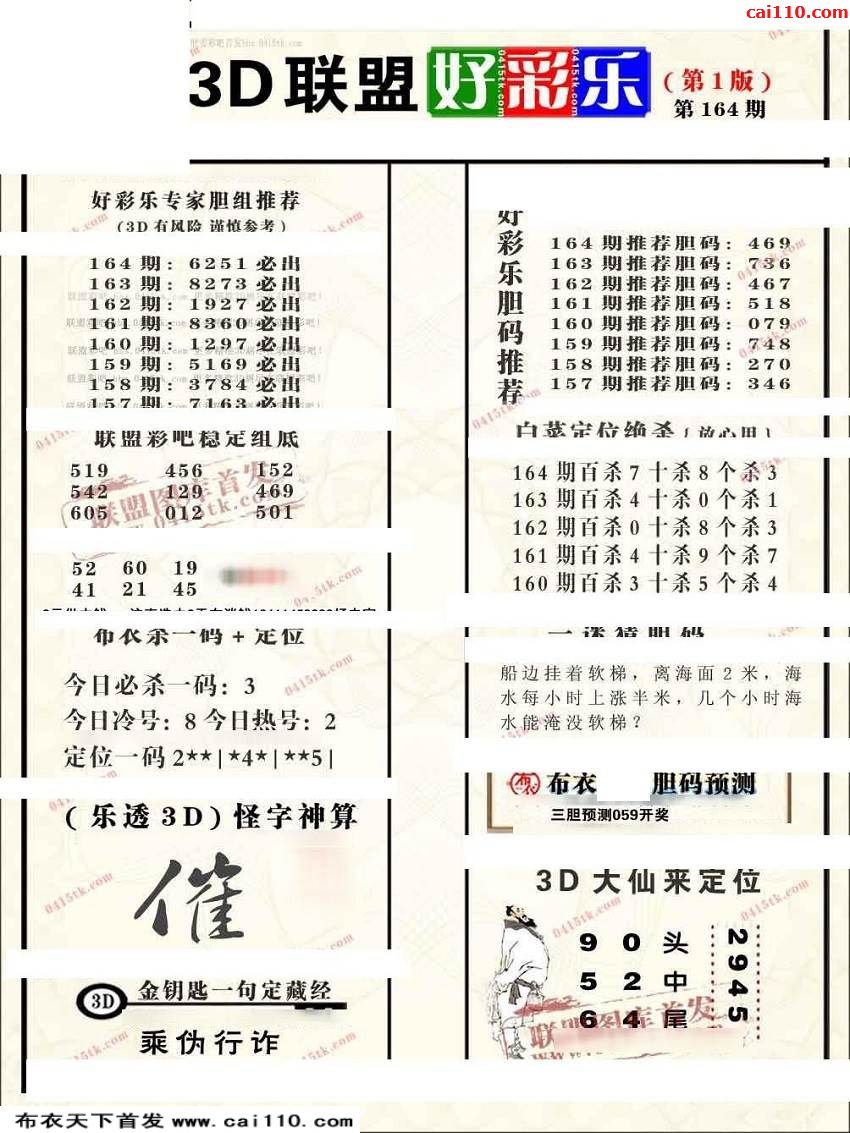 cai110.com
3D联盟好彩乐
(第1版)
第164期
好彩乐专家胆组推荐
(3D有风险 谨慎参考)
164期: 6251必出
163期: 8273必出
162期: 1927必出
161期: 8360必出
160期: 1297必出
159期: 5169必出
158期: 3784必出
157期: 7163必出
联盟彩吧稳定组底
519 456 152
542 129 469
605 012 501
52 60 19
41 21 45
布衣杀一码+定位
今日必杀一码: 3
今日冷号: 8 今日热号: 2
定位一码 2**|*4*|**5|
(乐透3D)怪字神算
催
3D 金钥匙一句定藏经
乘伪行诈
好彩乐胆码推荐
164期推荐胆码: 469
163期推荐胆码: 736
162期推荐胆码: 467
161期推荐胆码: 518
160期推荐胆码: 079
159期推荐胆码: 748
158期推荐胆码: 270
157期推荐胆码: 346
白菜定位绝杀(放心用)
164期百杀7十杀8个杀3
163期百杀4十杀0个杀1
162期百杀0十杀8个杀3
161期百杀4十杀9个杀7
160期百杀3十杀5个杀4
一谜猜胆码
船边挂着软梯，离海面2米，海
水每小时上涨半米，几个小时海
水能淹没软梯？
布衣 胆码预测
三胆预测059开奖
3D大仙来定位
9 0 头
5 2 中
6 4 尾
2945
联盟图库首发
0415tk.com
布衣天下首发 www.cai110.com